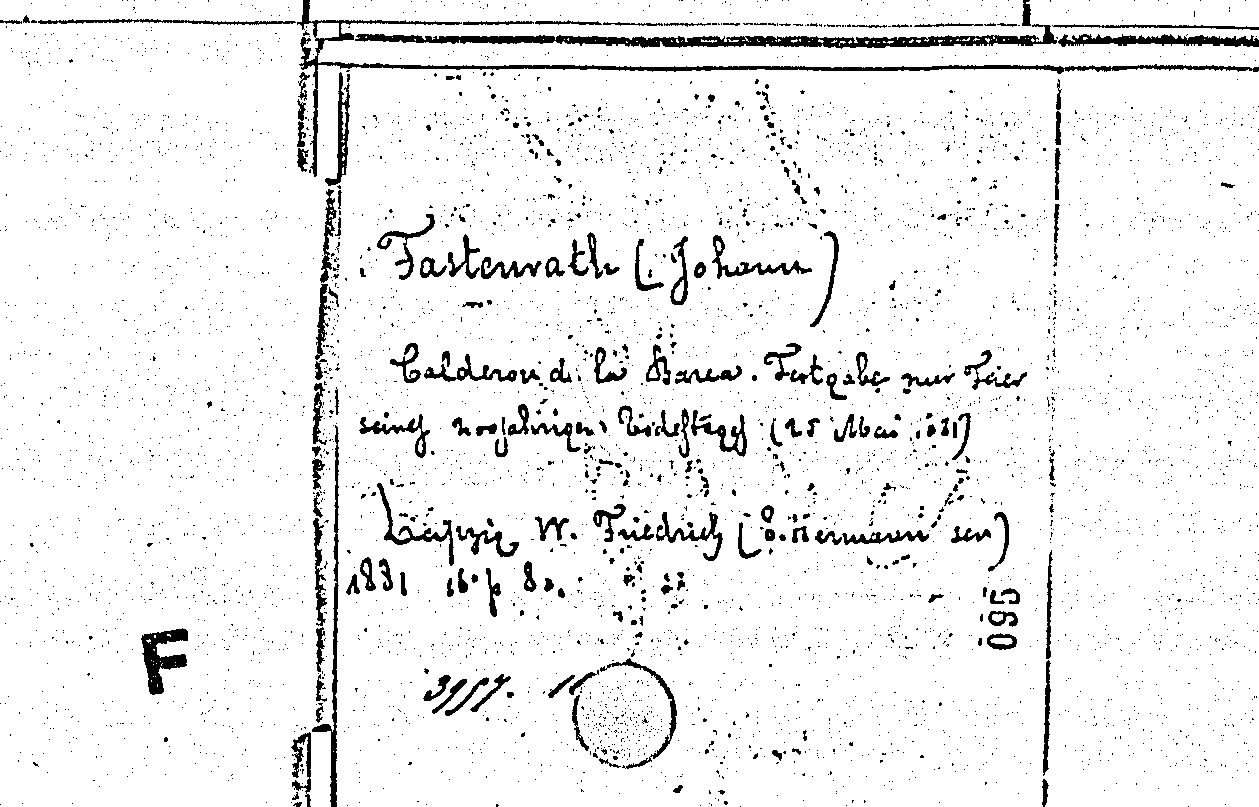 Fastenrath (. Johann)
Calderon de la Barca. Festgabe zur Feier
seines 200jahrigen Todestages (25 Mai 1881)
Leipzig W. Friedrich ( Hermann sen)
1881 16° p 8
560
F
3957.